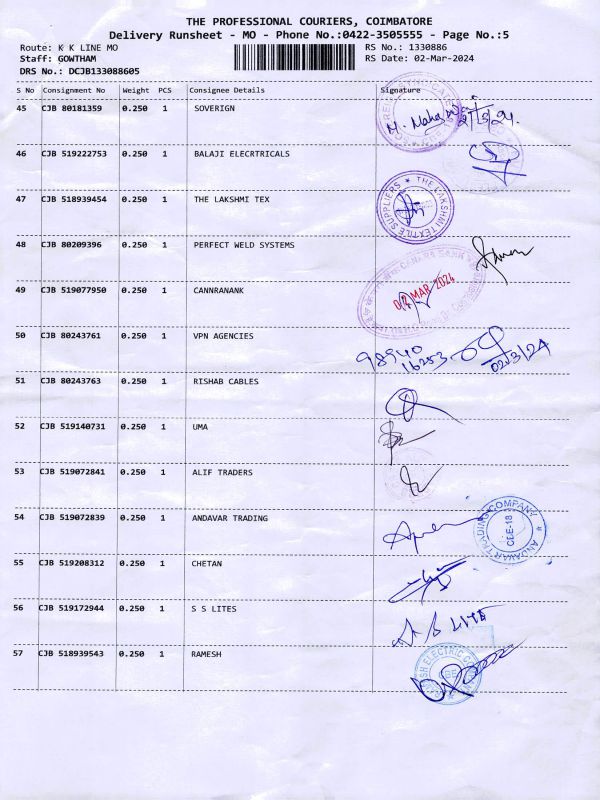 THE PROFESSIONAL COURIERS, COIMBATORE
Delivery Runsheet - MO - Phone No.:0422-3505555 - Page No.:5
Route: K K LINE MO RS No.: 1330886
Staff: GOWTHAM RS Date: 02-Mar-2024
DRS No.: DCJB133088605
S No Consignment No Weight PCS Consignee Details Signature
45 CJB 80181359 0.250 1 SOVERIGN
46 CJB 519222753 0.250 1 BALAJI ELECRTRICALS
47 CJB 518939454 0.250 1 THE LAKSHMI TEX
THE LAKSHMI TEXTILE SUPPLIERS
48 CJB 80209396 0.250 1 PERFECT WELD SYSTEMS
49 CJB 519077950 0.250 1 CANNRANANK
CANARA BANK
02 MAR 2024
50 CJB 80243761 0.250 1 VPN AGENCIES
98940
16253
02/3/24
51 CJB 80243763 0.250 1 RISHAB CABLES
52 CJB 519140731 0.250 1 UMA
53 CJB 519072841 0.250 1 ALIF TRADERS
54 CJB 519072839 0.250 1 ANDAVAR TRADING
ANDAVAR TRADING COMPANY
CBE-18
55 CJB 519208312 0.250 1 CHETAN
56 CJB 519172944 0.250 1 S S LITES
57 CJB 518939543 0.250 1 RAMESH